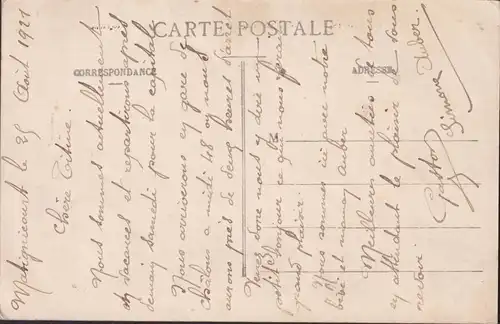 CARTE POSTALE
CORRESPONDANCE
ADRESSE
Matignicourt le 25 Août 1921
Chère Titine
Nous sommes actuellement
en vacances et repartirons après
demain samedi pour la capitale
Nous arriverons en gare de
Chalons a midi 48 ou nous
aurons près de deux heures d'arrêt
Venez donc nous y dire un
petit bonjour ce que nous fera
grand plaisir.
Nous sommes ici avec notre
bébé et maman Auber
Meilleures amitiés de tous
en attendant le plaisir de vous
revoir
Gaston
Simone Auber